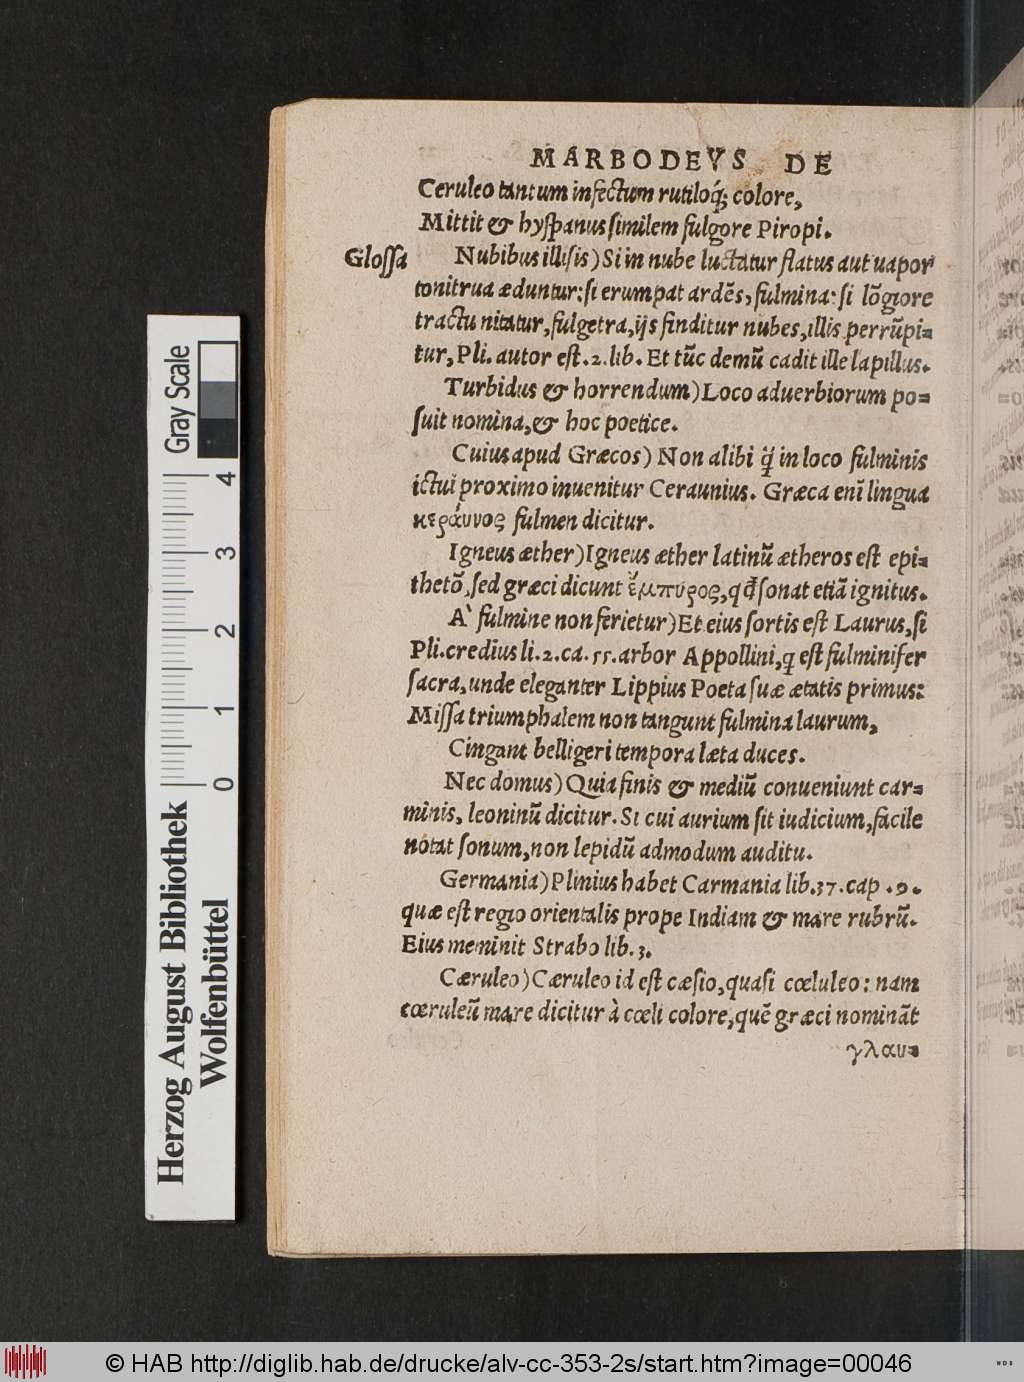 MARBODEVS DE
Ceruleo tantum infectum rutiloq́; colore,
Mittit & hyſpanus ſimilem fulgore Piropi.
Gloſſa
Nubibus illiſis) Si in nube luctatur flatus aut uapor
tonitrua æduntur: ſi erumpat ardẽs, fulmina: ſi lõgiore
tractu nitatur, fulgetra, ijs finditur nubes, illis perrũpi=
tur, Pli. autor eſt. 2. lib. Et tũc demũ cadit ille lapillus.
Turbidus & horrendum) Loco aduerbiorum po=
ſuit nomina, & hoc poetice.
Cuius apud Græcos) Non alibi q̃ in loco fulminis
ictui proximo inuenitur Ceraunius. Græca eni͂ lingua
κεράυνος fulmen dicitur.
Igneus æther) Igneus æther latinũ ætheros eſt epi=
thetõ, ſed græci dicunt ἔμπυρος, qđ ſonat etiã ignitus.
A` fulmine non ferietur) Et eius ſortis eſt Laurus, ſi
Pli. credius li. 2. ca. 55. arbor Appollini, q eſt fulminifer
ſacra, unde eleganter Lippius Poeta ſuæ ætatis primus:
Miſſa triumphalem non tangunt fulmina laurum,
Cingant belligeri tempora læta duces.
Nec domus) Quia finis & mediũ conueniunt car=
minis, leoninũ dicitur. Si cui aurium ſit iudicium, facile
notat ſonum, non lepidũ admodum auditu.
Germania) Plinius habet Carmania lib. 37. cap. 9.
quæ eſt regio orientalis prope Indiam & mare rubrũ.
Eius meminit Strabo lib. 3.
Cæruleo) Cæruleo id eſt cæſio, quaſi cœluleo: nam
cœruleũ mare dicitur à cœli colore, quẽ græci nominãt
γλαυ=
Gray Scale
4
3
2
1
0
Herzog August Bibliothek
Wolfenbüttel
© HAB http://diglib.hab.de/drucke/alv-cc-353-2s/start.htm?image=00046